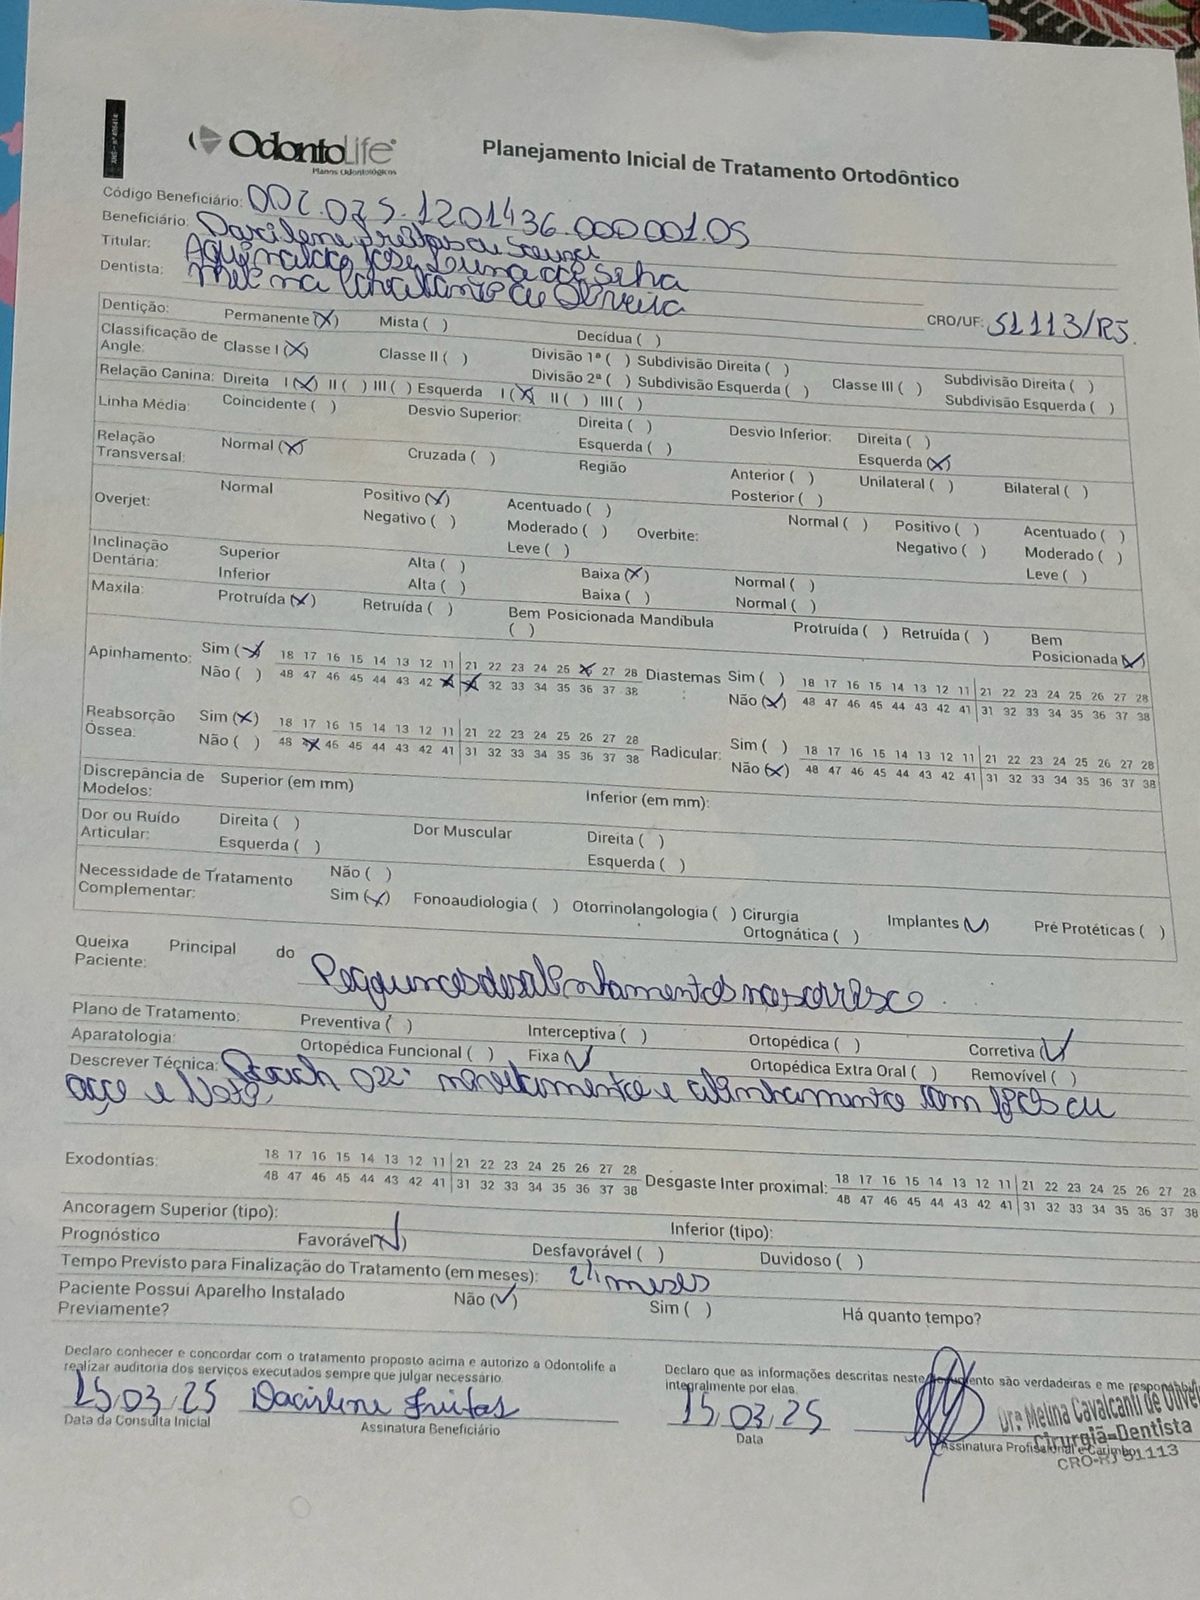 OdontoLife
Planos Odontológicos
Planejamento Inicial de Tratamento Ortodôntico
Código Beneficiário: 002.025.1201436.000001.05
Beneficiário: Dacilene Freitas de Souza
Titular: Aguinaldo José Souza da Silva
Dentista: Melina Cavalcanti de Oliveira CRO/UF: 51113/RJ.
Dentição: Permanente (X) Mista ( ) Decídua ( )
Classificação de Angle: Classe I (X) Classe II ( ) Divisão 1ª ( ) Subdivisão Direita ( ) Classe III ( ) Subdivisão Direita ( )
Divisão 2ª ( ) Subdivisão Esquerda ( ) Subdivisão Esquerda ( )
Relação Canina: Direita I (X) II ( ) III ( ) Esquerda I (X) II ( ) III ( )
Linha Média: Coincidente ( ) Desvio Superior: Direita ( ) Desvio Inferior: Direita ( )
Esquerda ( ) Esquerda (X)
Relação Transversal: Normal (X) Cruzada ( ) Região Anterior ( ) Unilateral ( ) Bilateral ( )
Posterior ( )
Overjet: Normal Positivo (X) Acentuado ( ) Overbite: Normal ( ) Positivo ( ) Acentuado ( )
Negativo ( ) Moderado ( ) Negativo ( ) Moderado ( )
Leve ( ) Leve ( )
Inclinação Dentária: Superior Alta ( ) Baixa (X) Normal ( )
Inferior Alta ( ) Baixa ( ) Normal ( )
Maxila: Protruída (X) Retruída ( ) Bem Posicionada ( ) Mandíbula Protruída ( ) Retruída ( ) Bem Posicionada (X)
Apinhamento: Sim (X) 18 17 16 15 14 13 12 11 21 22 23 24 25 X 27 28 Diastemas Sim ( ) 18 17 16 15 14 13 12 11 21 22 23 24 25 26 27 28
Não ( ) 48 47 46 45 44 43 42 X X 32 33 34 35 36 37 38 : Não (X) 48 47 46 45 44 43 42 41 31 32 33 34 35 36 37 38
Reabsorção Óssea: Sim (X) 18 17 16 15 14 13 12 11 21 22 23 24 25 26 27 28 Radicular: Sim ( ) 18 17 16 15 14 13 12 11 21 22 23 24 25 26 27 28
Não ( ) 48 X 46 45 44 43 42 41 31 32 33 34 35 36 37 38 Não (X) 48 47 46 45 44 43 42 41 31 32 33 34 35 36 37 38
Discrepância de Modelos: Superior (em mm) Inferior (em mm):
Dor ou Ruído Articular: Direita ( ) Dor Muscular Direita ( )
Esquerda ( ) Esquerda ( )
Necessidade de Tratamento Complementar: Não ( )
Sim (X) Fonoaudiologia ( ) Otorrinolangologia ( ) Cirurgia Ortognática ( ) Implantes (✓) Pré Protéticas ( )
Queixa Principal do Paciente: Pequenos desalinhamentos no sorriso.
Plano de Tratamento: Preventiva ( ) Interceptiva ( ) Ortopédica ( ) Corretiva (✓)
Aparatologia: Ortopédica Funcional ( ) Fixa (✓) Ortopédica Extra Oral ( ) Removível ( )
Descrever Técnica: 022" nivelamento e alinhamento com fios de
aço e Niti.
Exodontias: 18 17 16 15 14 13 12 11 21 22 23 24 25 26 27 28 Desgaste Inter proximal: 18 17 16 15 14 13 12 11 21 22 23 24 25 26 27 28
48 47 46 45 44 43 42 41 31 32 33 34 35 36 37 38 48 47 46 45 44 43 42 41 31 32 33 34 35 36 37 38
Ancoragem Superior (tipo): Inferior (tipo):
Prognóstico Favorável (X) Desfavorável ( ) Duvidoso ( )
Tempo Previsto para Finalização do Tratamento (em meses): 24 meses
Paciente Possui Aparelho Instalado Previamente? Não (✓) Sim ( ) Há quanto tempo?
Declaro conhecer e concordar com o tratamento proposto acima e autorizo a Odontolife a
realizar auditoria dos serviços executados sempre que julgar necessário.
15/03/25 Dacirlene Freitas
Data da Consulta Inicial Assinatura Beneficiário
Declaro que as informações descritas neste documento são verdadeiras e me responsabilizo
integralmente por elas.
15/03/25
Data Assinatura Profissional e Carimbo
Drª Melina Cavalcanti de Olivei
Cirurgiã-Dentista
CRO-RJ 51113